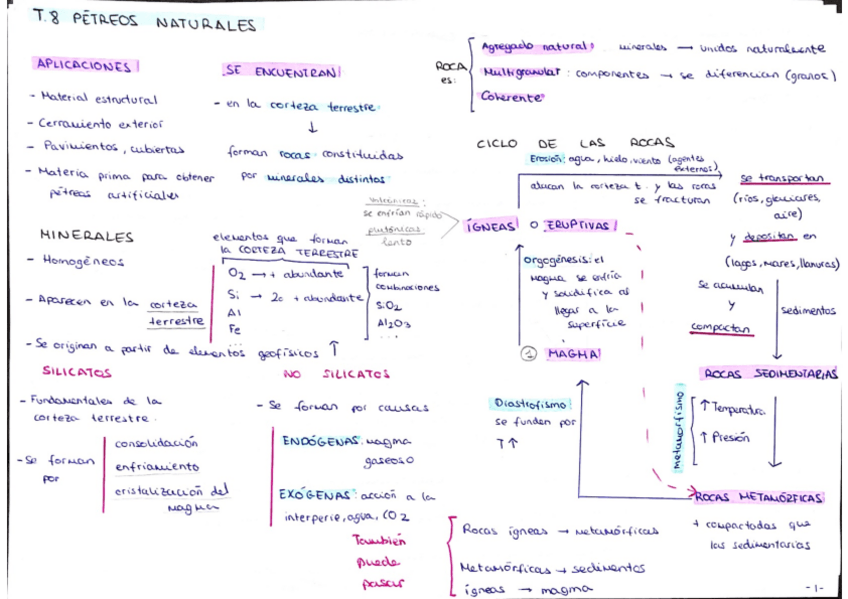 T.8 PÉTREOS NATURALES
APLICACIONES
- Material estructural
- Cerramiento exterior
- Pavimientos, cubiertas
- Materia prima para obtener
pétreas artificiales
SE ENCUENTRAN
- en la corteza terrestre
↓
forman rocas constituidas
por minerales distintos
ROCA
es:
Agregado natural: minerales → unidos naturalmente
Multigranular: componentes → se diferencian (granos)
Coherente
MINERALES
- Homogéneos
- Aparecen en la corteza
terrestre
- Se originan a partir de elementos geofísicos ↑
elementos que forman
la CORTEZA TERRESTRE
O2 → + abundante
Si → 2o + abundante
Al
Fe
forman
combinaciones
SiO2
Al2O3
...
SILICATOS
- Fundamentales de la
corteza terrestre.
- Se forman
por
consolidación
enfriamiento
cristalización del
magma
NO SILICATOS
- Se forman por causas
ENDÓGENAS: magma
gaseoso
EXÓGENAS: acción a la
interperie, agua, CO2
CICLO DE LAS ROCAS
Erosión: agua, hielo, viento (agentes
externos)
atacan la corteza t. y las rocas
se fracturan
se transportan
(ríos, glaciares,
aire)
y depositan en
(lagos, mares, llanuras)
se acumulan
y
compactan
sedimentos
ROCAS SEDIMENTARIAS
volcánicas:
se enfrían rápido
plutónicas
lento
ÍGNEAS O ERUPTIVAS
orgogénesis: el
magma se enfría
y solidifica al
llegar a la
superficie
1 MAGMA
Diastrofismo:
se funden por
T ↑
metamorfismo
↑ Temperatura
↑ Presión
ROCAS METAMÓRFICAS
+ compactadas que
las sedimentarias
También
puede
pasar
Rocas ígneas → metamórficas
Metamórficas → sedimentos
ígneas → magma
-1-